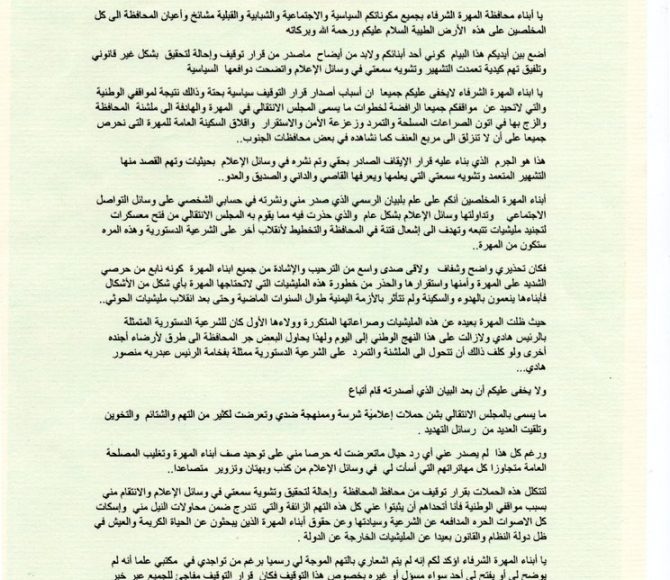 يا أبناء محافظة المهرة الشرفاء بجميع مكوناتكم السياسية والاجتماعية والشبابية والقبلية مشائخ وأعيان المحافظة الى كل
المخلصين على هذه الأرض الطيبة السلام عليكم ورحمة الله وبركاته
أضع بين أيديكم هذا البيام كوني أحد أبنائكم ولابد من أيضاح ماصدر من قرار توقيف وإحالة لتحقيق بشكل غير قانوني
وتلفيق تهم كيدية تعمدت التشهير وتشويه سمعتي في وسائل الإعلام واتضحت دوافعها السياسية
يا ابناء المهرة الشرفاء لايخفى عليكم جميعا ان أسباب أصدار قرار التوقيف سياسية بحتة وذالك نتيجة لمواقفي الوطنية
والتي لاتحيد عن مواقفكم جميعا الرافضة لخطوات ما يسمى المجلس الانتقالي في المهرة والهادفة الى ملشنة المحافظة
والزج بها في اتون الصراعات المسلحة والتمرد وزعزعة الأمن والاستقرار واقلاق السكينة العامة للمهرة التى نحرص
جميعا على أن لا تنزلق الى مربع العنف كما نشاهده في بعض محافظات الجنوب..
هذا هو الجرم الذي بناء عليه قرار الإيقاف الصادر بحقي وتم نشره في وسائل الإعلام بحيثيات وتهم القصد منها
التشهير المتعمد وتشويه سمعتي التي يعلمها ويعرفها القاصي والداني والصديق والعدو..
أبناء المهرة المخلصين أنكم على علم بلبيان الرسمي الذي صدر مني ونشرته في حسابي الشخصي على وسائل التواصل
الاجتماعي وتداولتها وسائل الإعلام بشكل عام والذي حذرت فيه مما يقوم به المجلس الانتقالي من فتح معسكرات
لتجنيد مليشيات تتبعه وتهدف الى إشعال فتنة في المحافظة والتخطيط لأنقلاب أخر على الشرعية الدستورية وهذه المره
ستكون من المهرة..
فكان تحذيري واضح وشفاف ولاقى صدى واسع من الترحيب والإشادة من جميع ابناء المهرة كونه نابع من حرصي
الشديد على المهرة وأمنها واستقرارها والحذر من خطورة هذه المليشيات التي لاتحتاجها المهرة بأي شكل من الأشكال
فأبناءها ينعمون بالهدوء والسكينة ولم تتأثر بالأزمة اليمنية طوال السنوات الماضية وحتى بعد انقلاب مليشيات الحوثي..
حيث ظلت المهرة بعيده عن هذه المليشيات وصراعاتها المتكررة وولاءها الأول كان للشرعية الدستورية المتمثلة
بالرئيس هادي ولازالت على هذا النهج الوطني إلى اليوم ولهذا يحاول البعض جر المحافظة الى طرق لأرضاء أجنده
أخرى ولو كلف ذالك أن تتحول الى الملشنة والتمرد على الشرعية الدستورية ممثلة بفخامة الرئيس عبدربه منصور
هادي..
ولا يخفى عليكم أن بعد البيان الذي أصدرته قام أتباع
ما يسمى بالمجلس الانتقالي بشن حملات إعلاميّة شرسة وممنهجة ضدي وتعرضت لكثير من التهم والشتائم والتخوين
وتلقيت العديد من رسائل التهديد .
ورغم كل هذا لم يصدر عني أي رد حيال ماتعرضت له حرصا مني على توحيد صف أبناء المهرة وتغليب المصلحة
العامة متجاوزا كل مهاتراتهم التي أسأت لي في وسائل الإعلام من كذب وبهتان وتزوير متصاعدا..
لتتكلل هذه الحملات بقرار توقيف من محافظ المحافظة وإحالة لتحقيق وتشوية سمعتي في وسائل الإعلام والانتقام مني
بسبب مواقفي الوطنية فأنا أتحداهم أن يثبتوا عني كل هذه التهم الزائفة والتي تندرج ضمن محاولات النيل مني وإسكات
كل الاصوات الحره المدافعه عن الشرعية وسيادتها وعن حقوق أبناء المهرة الذين يبحثون عن الحياة الكريمة والعيش في
ظل دولة النظام والقانون بعيدا عن المليشيات الخارجة عن الدولة .
يا أبناء المهرة الشرفاء اؤكد لكم إنه لم يتم اشعاري بالتهم الموجة لي رسميا برغم من تواجدي في مكتبي علما أنه لم
يوضح لي أو يفتح لي أحد سواء مسؤل أو غيره بخصوص هذا التوقيف فكان قرار التوقيف مفاجئ للجميع عبر خبر